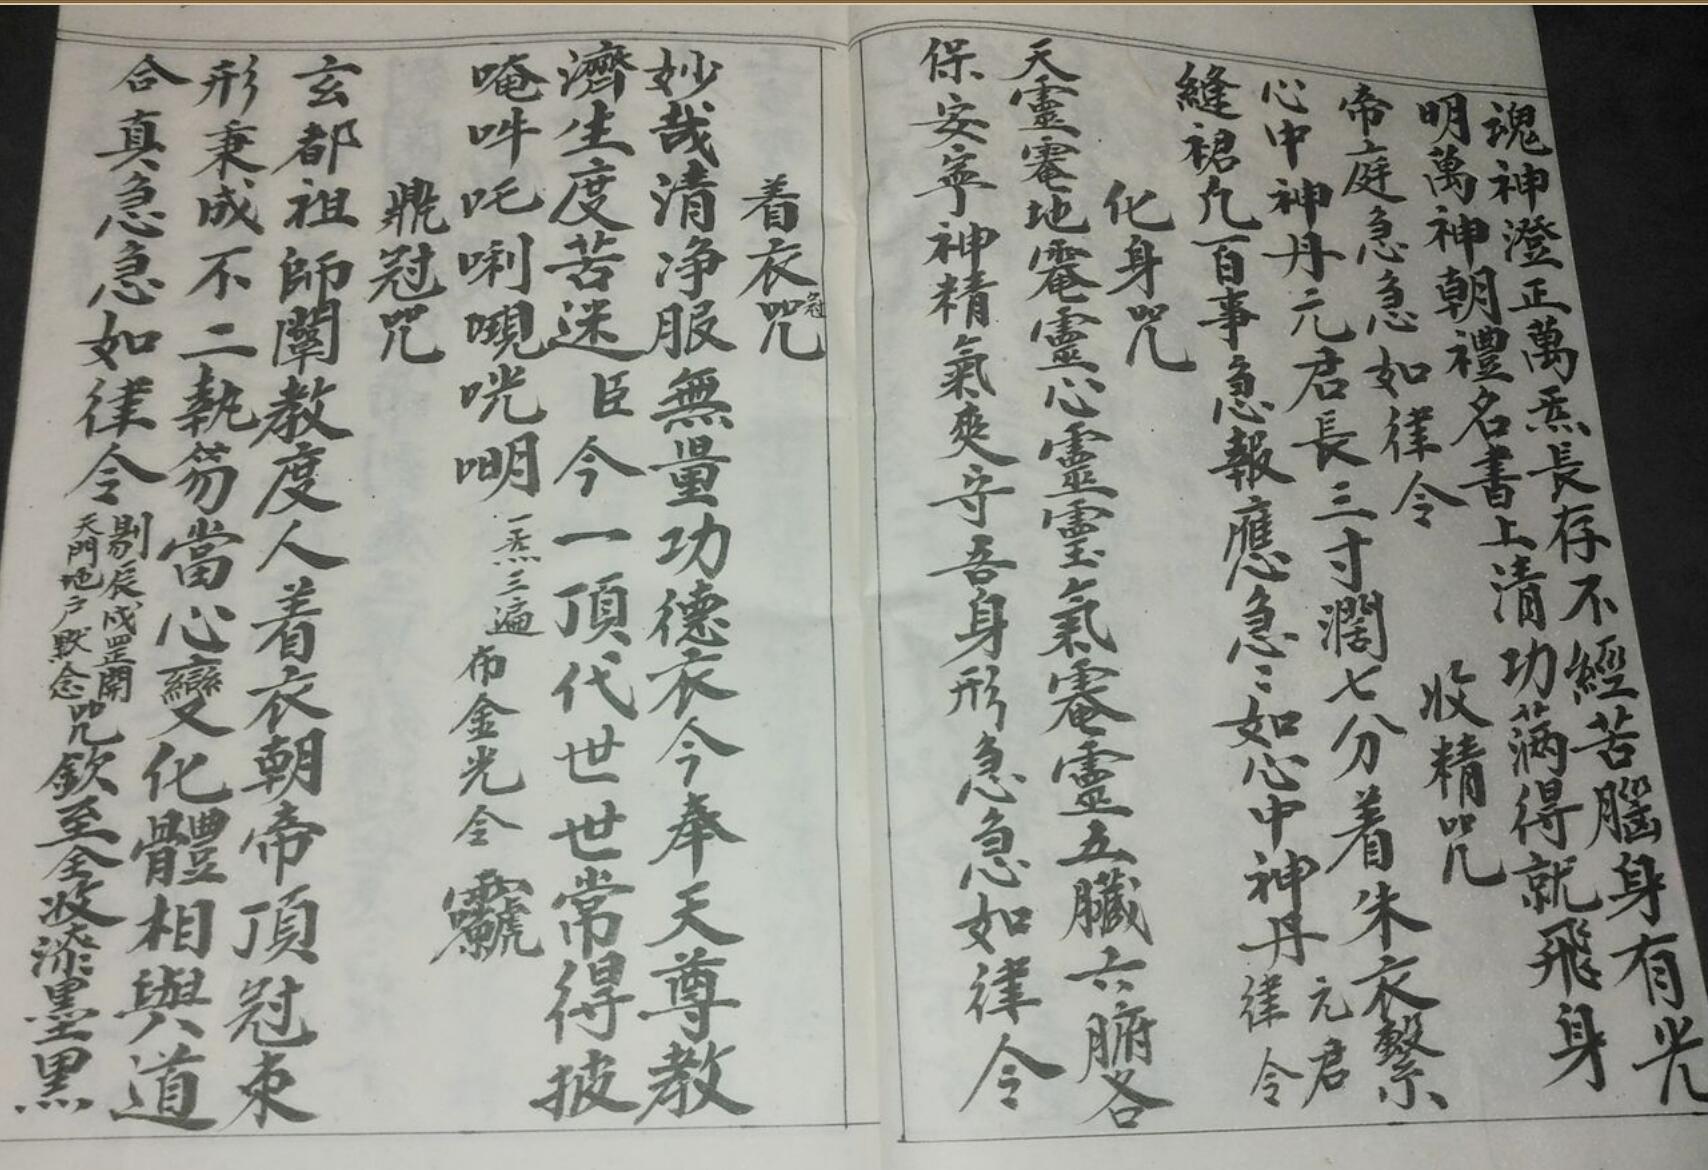 魂神澄正萬炁長存不經苦腦身有光
明萬神朝禮名書上清功滿得就飛身
帝庭急急如律令　收精咒
心中神丹元君長三寸濶七分着朱衣繫
縫裙凡百事急報應急〻如心中神丹元君律令
化身咒
天靈靈地靈心靈靈氣靈五臟六腑各
保安寧神精氣爽守吾身形急急如律令
着衣冠咒
妙哉清净服無量功德衣今奉天尊教
濟生度苦迷臣今一頂代世世常得披
唵吽吒唎晛咣明一炁三遍布金光令
鼎冠咒
玄都祖師闡教度人着衣朝帝頂冠束
形秉成不二執笏當心變化體相與道
合真急急如律令剔辰戌罡開天門地戶默念咒欽至全收漆墨黑